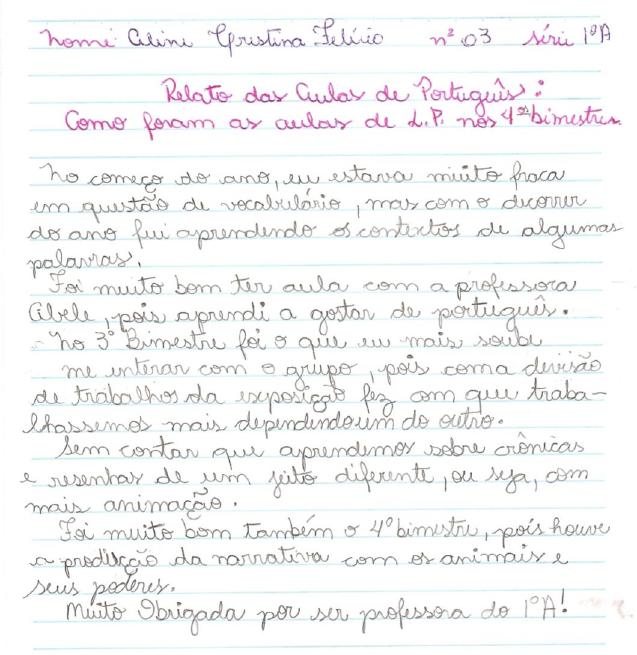 Nome Aline Cristina Felício nº 03 série 1ºA
Relato das Aulas de Português:
Como foram as aulas de L.P. nos 4ºs bimestres.
No começo do ano, eu estava muito fraca
em questão de vocabulário, mas com o decorrer
do ano fui aprendendo os contextos de algumas
palavras.
Foi muito bom ter aula com a professora
Cibele, pois aprendi a gostar de português.
No 3º Bimestre foi o que eu mais soube
me interar com o grupo, pois com a devisão
de trabalhos da exposição fez com que traba-
lhassemos mais dependendo um do outro.
Sem contar que aprendemos sobre crônicas
e resenhas de um jeito diferente, ou seja, com
mais animação.
Foi muito bom também o 4º bimestre, pois houve
a produção da narrativa com os animais e
seus poderes.
Muito Obrigada por ser professora do 1ºA!